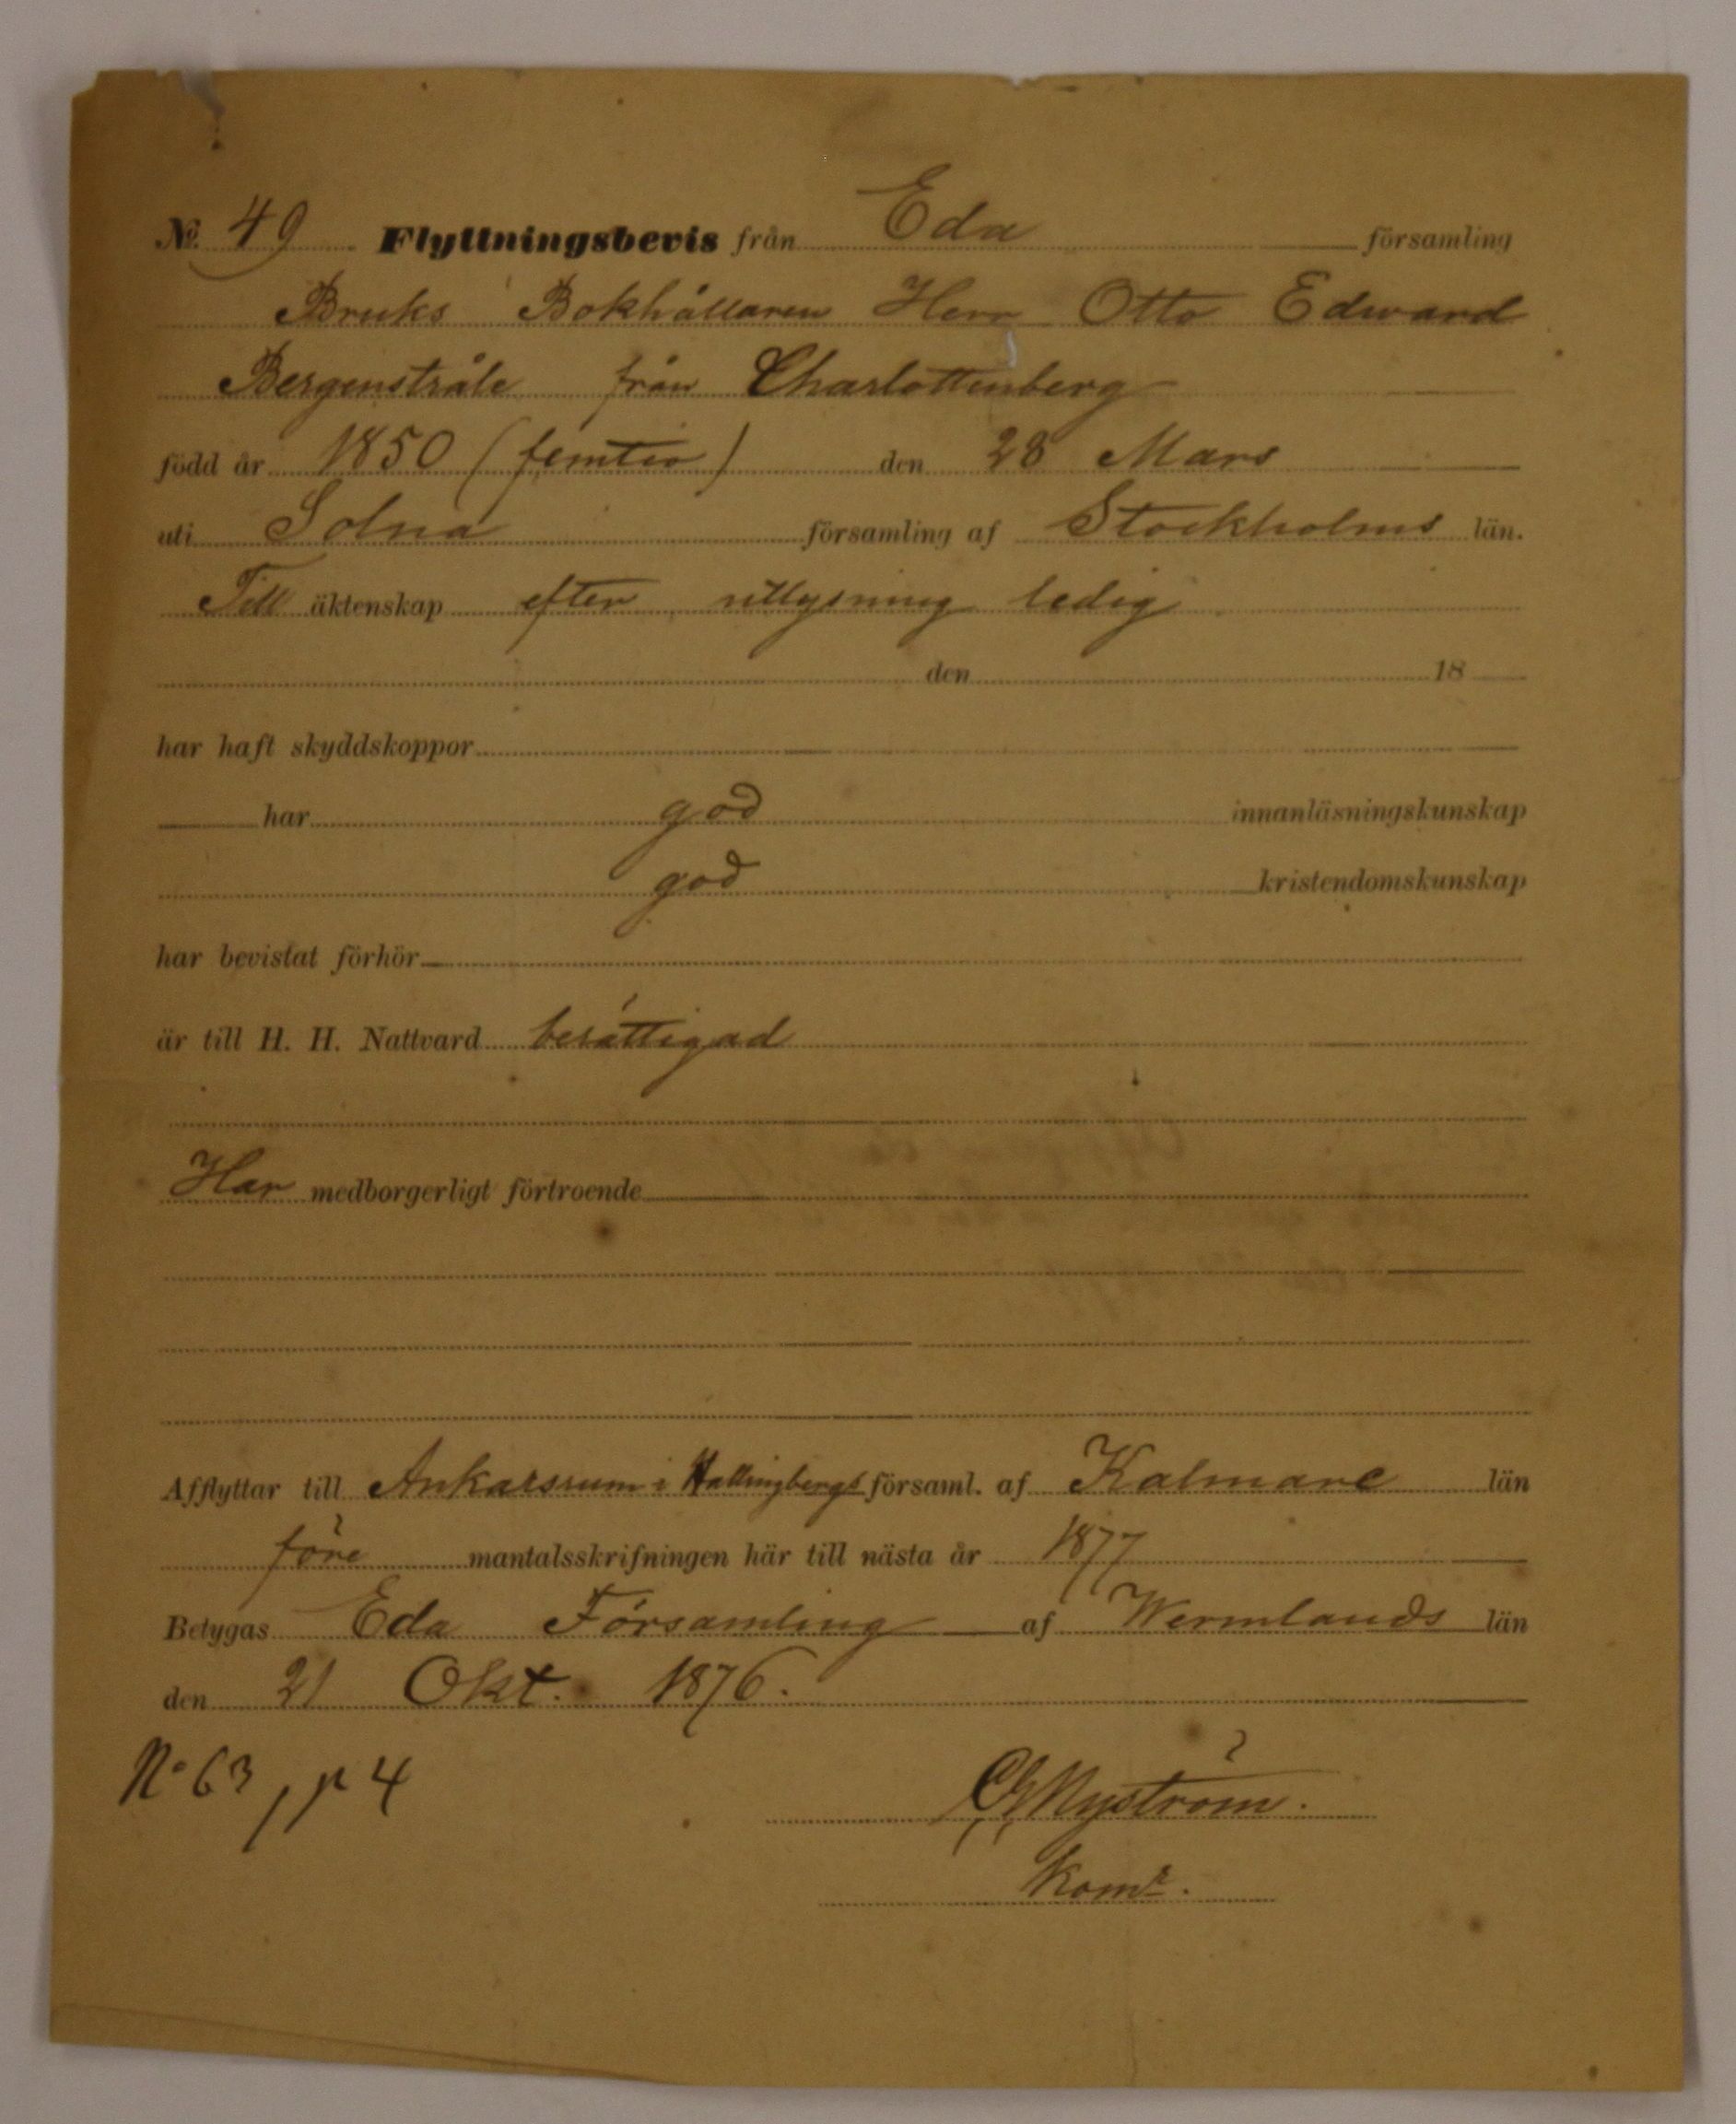 No. 49 Flyttningsbevis från Eda församling
Bruks Bokhållaren Herr Otto Edward
Bergenstråle från Charlottenberg
född år 1850 (femtio) den 28 Mars
uti Solna församling af Stockholms län.
Till äktenskap efter utlysning ledig
den 18
har haft skyddskoppor
har god innanläsningskunskap
god kristendomskunskap
har bevistat förhör
är till H. H. Nattvard berättigad
Har medborgerligt förtroende
Afflyttar till Ankarsrum i Hallingbergs församl. af Kalmare län
före mantalsskrifningen här till nästa år 1877
Betygas Eda Församling af Wermlands län
den 21 Okt. 1876.
No 63, p 4
Nyström.
Komr.